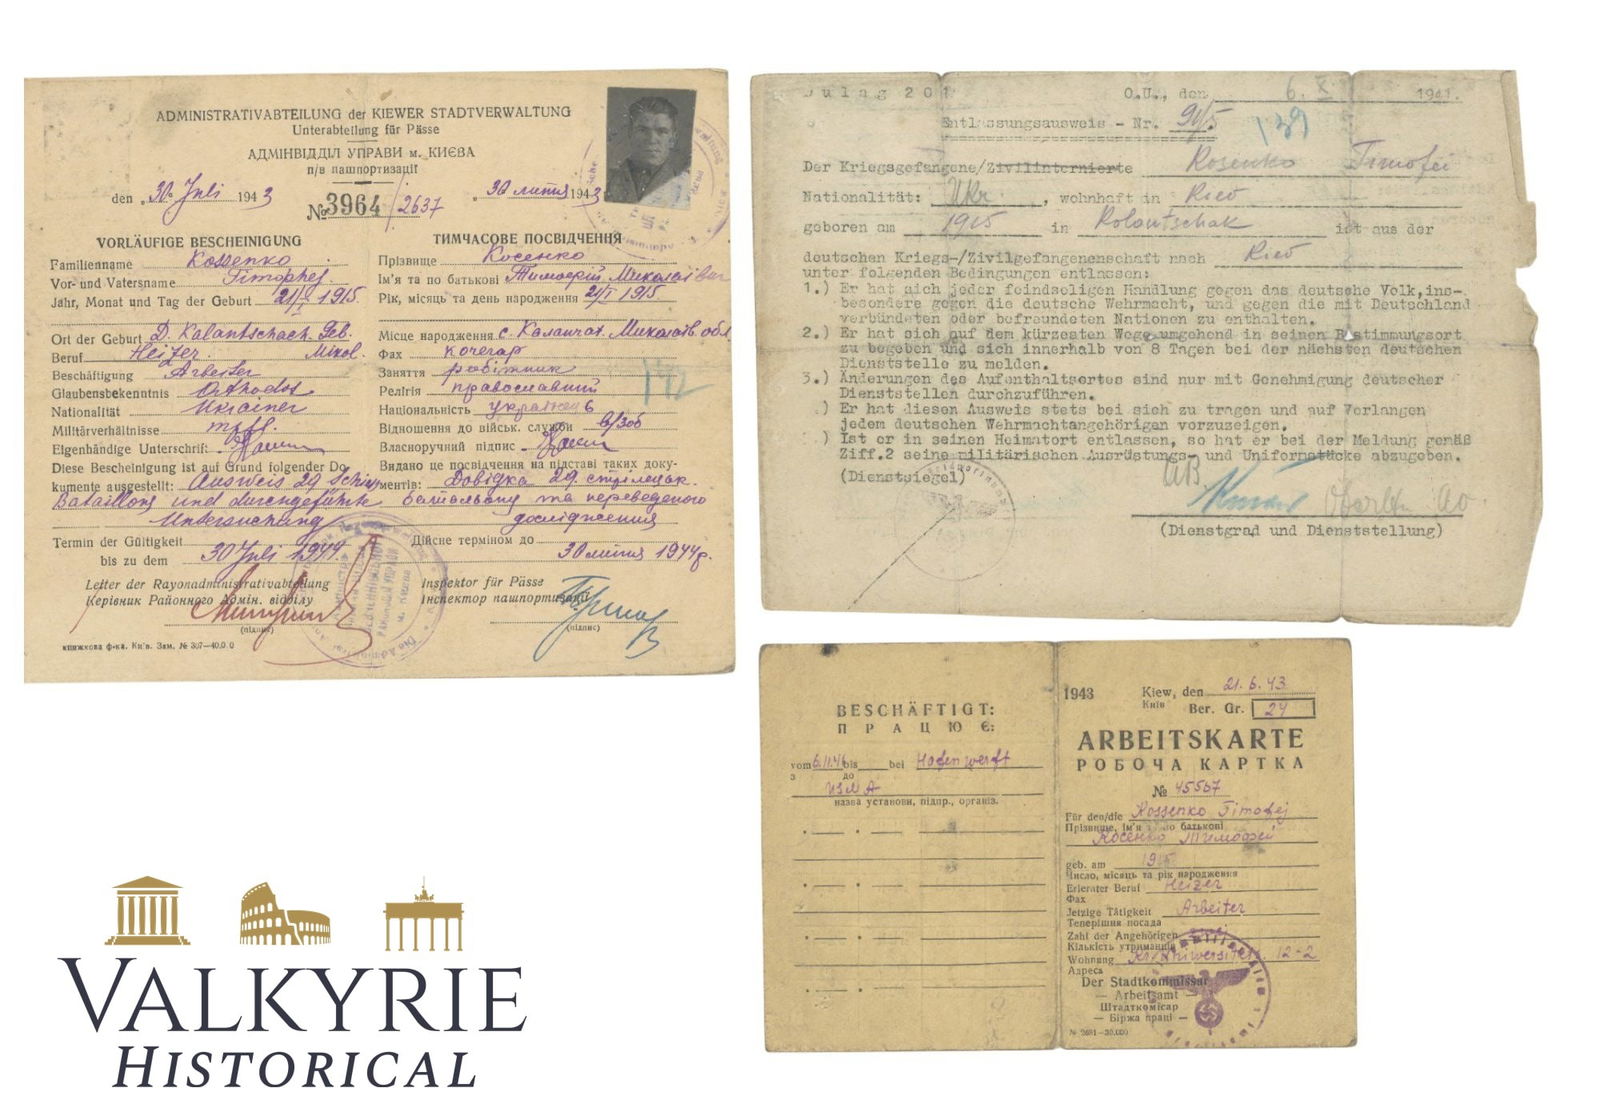 ADMINISTRATIVABTEILUNG der KIEWER STADTVERWALTUNG
Unterabteilung für Pässe
АДМІНВІДДІЛ УПРАВИ м. КИЄВА
п/в пашпортизації
den „30. Juli 1943
№ 3964 / 2637
„30 липня 1943
VORLÄUFIGE BESCHEINIGUNG
Familienname Kossenko
Vor- und Vatersname Timophej
Jahr, Monat und Tag der Geburt 21/I 1915.
Ort der Geburt D. Kalantschach. Geb.
Beruf Heizer. Mikol.
Beschäftigung Arbeiter
Glaubensbekenntnis Orthodos
Nationalität Ukrainer
Militärverhältnisse
Eigenhändige Unterschrift
Diese Bescheinigung ist auf Grund folgender Do
kumente ausgestellt: Ausweis 29 Schütz
Bataillons und durchgeführte
Untersuchung
Termin der Gültigkeit
bis zu dem 30 Juli 1944
Leiter der Rayonadministrativabteilung
Керівник Районного Адмін. відділу
(підпис)
книжкова ф-ка. Київ. Зам. № 307—40.000
ТИМЧАСОВЕ ПОСВІДЧЕННЯ
Прізвище Косенко
Ім'я та по батькові Тимофій Миколаївич
Рік, місяць та день народження 21/I 1915.
Місце народження с. Каланчах. Миколаїв. обл.
Фах кочегар
Заняття робітник
Релігія православний
Національність українець
Відношення до військ. служби в/зоб
Власноручний підпис
Видано це посвідчення на підставі таких доку-
ментів: Довідка 29. стрілецьк.
батальону та переведеного
дослідження
Дійсне терміном до
30 липня 1944р.
Inspektor für Pässe
Інспектор пашпортизації
(підпис)
Dulag 201 O.U., den 6. X. 1941.
Entlassungsausweis - Nr. 9415
139
Der Kriegsgefangene/Zivilinternierte Kosenko Timofei
Nationalität: Ukr., wohnhaft in Kiew
geboren am 1915 in Kolantschak ist aus der
deutschen Kriegs-/Zivilgefangenenschaft nach Kiew
unter folgenden Bedingungen entlassen:
1.) Er hat sich jeder feindseligen Handlung gegen das deutsche Volk,ins-
besondere gegen die deutsche Wehrmacht, und gegen die mit Deutschland
verbündeten oder befreundeten Nationen zu enthalten.
2.) Er hat sich auf dem kürzesten Wege umgehend in seinen Bestimmungsort
zu begeben und sich innerhalb von 8 Tagen bei der nächsten deutschen
Dienststelle zu melden.
3.) Änderungen des Aufenthaltsortes sind nur mit Genehmigung deutscher
Dienststellen durchzuführen.
.) Er hat diesen Ausweis stets bei sich zu tragen und auf Verlangen
jedem deutschen Wehrmachtangehörigen vorzuzeigen.
.) Ist er in seinen Heimatort entlassen, so hat er bei der Meldung gemäß
Ziff.2 seine militärischen Ausrüstungs- und Uniformstücke abzugeben.
(Dienstsiegel)
(Dienstgrad und Dienststellung)
BESCHÄFTIGT:
ПРАЦЮЄ:
vom bis bei Hafenwerft
з до
назва установи, підпр., організ.
1943 Kiew, den 21. 6. 43
Київ Ber. Gr. 24
ARBEITSKARTE
РОБОЧА КАРТКА
№ 45567
Für den/die Kossenko Timofej
Прізвище, ім'я по батькові
Косенко Тимофей
geb. am 1915
Число, місяць та рік народження
Erlerater Beruf Heizer
Фах
Jetzige Tätigkeit Arbeiter
Теперішня посада
Zahl der Angehörigen
Кількість утриманців
Wohnung 12-2
Адреса
Der Stadtkommissar
— Arbeitsamt —
Штадткомісар
— Біржа праці —
№ 2681—30.000
VALKYRIE
HISTORICAL